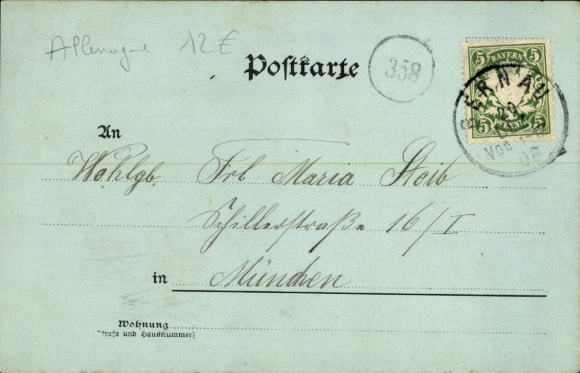 Allemagne 12 €
Postkarte
358
5 BAYERN 5
5 5
BERNAU
29
VOR
An
Wohlgb. Frl Maria Stoib
Schillerstraße 16/I
in München
Wohnung
(Straße und Hausnummer)